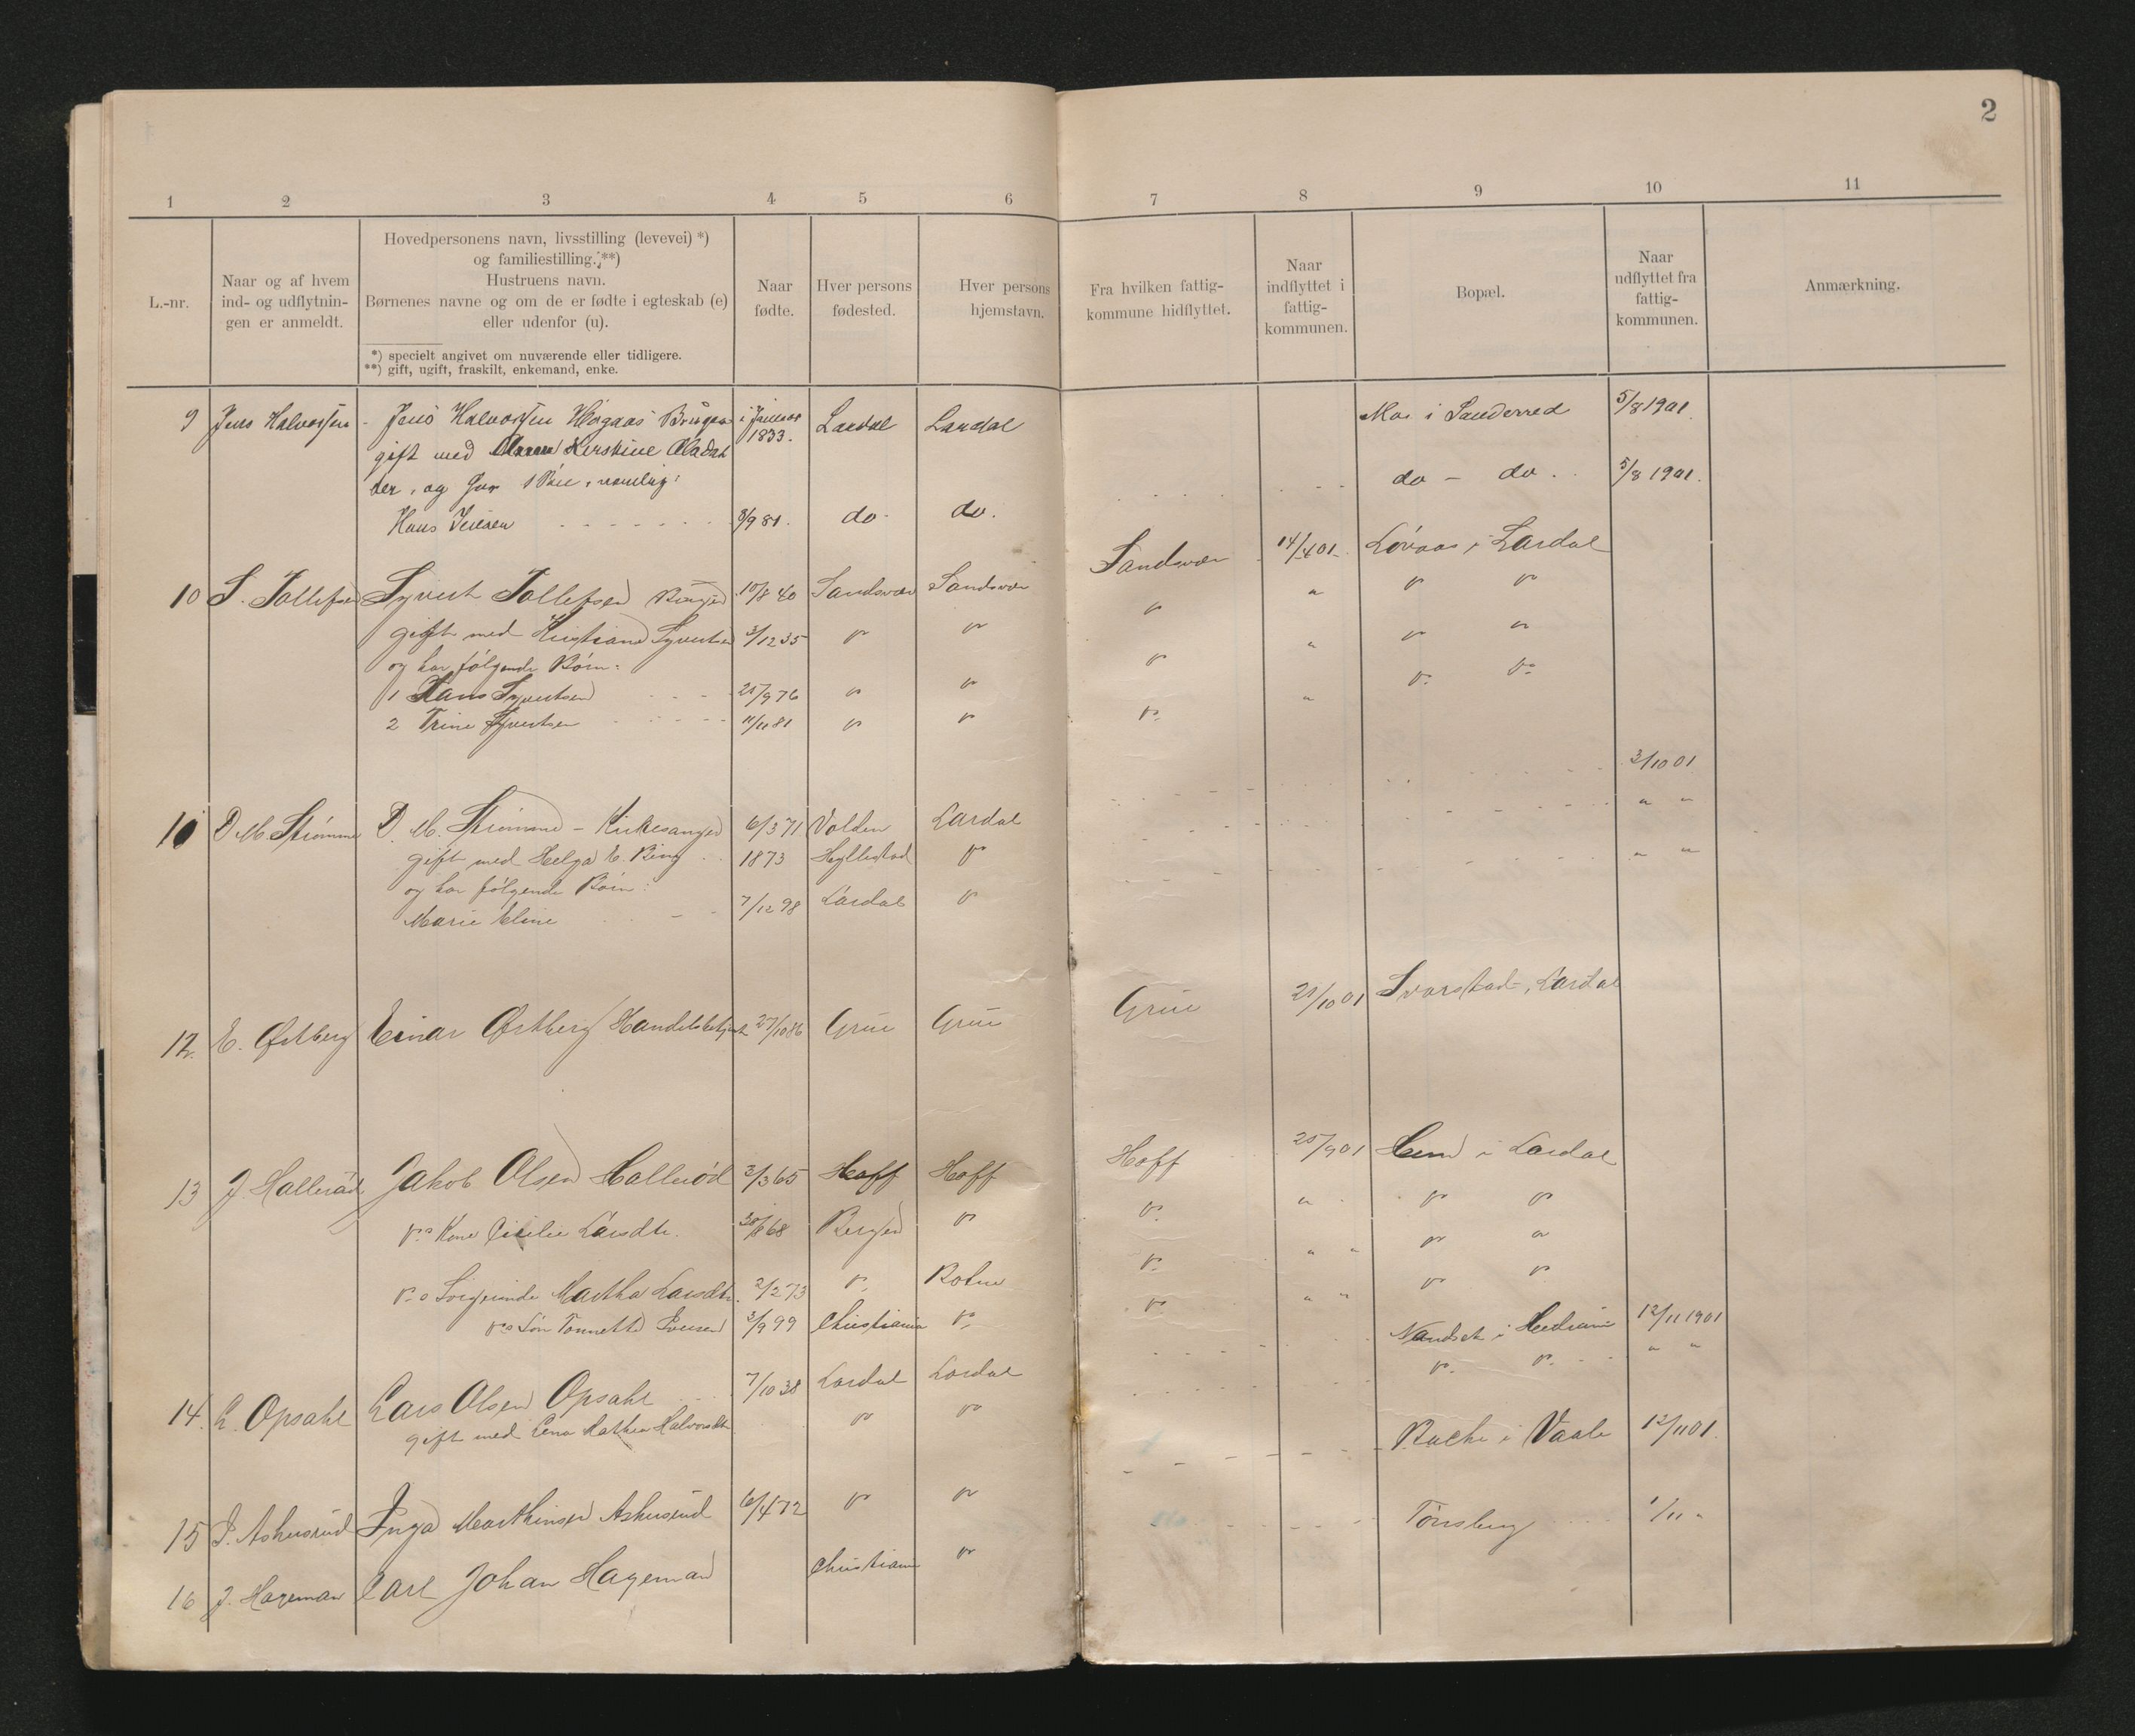 2
1 2 3 4 5 6 7 8 9 10 11
L.-nr.
Naar og af hvem
ind- og udflytnin-
gen er anmeldt.
Hovedpersonens navn, livsstilling (levevei) *)
og familiestilling. **)
Hustruens navn.
Børnenes navne og om de er fødte i egteskab (e)
eller udenfor (u).
*) specielt angivet om nuværende eller tidligere.
**) gift, ugift, fraskilt, enkemand, enke.
Naar
fødte.
Hver persons
fødested.
Hver persons
hjemstavn.
Fra hvilken fattig-
kommune hidflyttet.
Naar
indflyttet i
fattig-
kommunen.
Bopæl.
Naar
udflyttet fra
fattig-
kommunen.
Anmærkning.
9 Jens Halvorsen - Jens Halvorsen Høgaas i Januar 1833. Lardal Lardal Moe i Sanderred 5/8 1901
gift med Kerstine
og har
do - do. 5/8 1901.
Hans 3/9 81. do do.
10 S. Tollefsen Syvert Tollefsen 10/8 40 Sandsvær Sandsvær Sandsvær 14/4 01 Løvaas i Lardal
gift med Kristiane Syvertsen 3/12 35 " " " " " "
og har følgende Børn:
1 Hans Syvertsen 25/9 76 " " " " " "
2 Trine Syvertsen 11/11 81 " " " " " "
D M Strømme D. M. Strømme - Kirkesanger 6/3 71 Volden Lardal 3/10 01
gift med Helga E. Ring 1873 Hyllestad " " "
og har følgende Børn:
Marie Eline 7/12 98 Lardal " " "
12. E. Østberg Einar Østberg Handelsbetjent 27/10 86 Grue Grue Grue 21/10 01 Svarstad, Lardal
13 J Hallerød Jakob Olsen Hallerød 3/3 65 Hoff Hoff Hoff 25/9 01 Hem i Lardal
Kone Cicilie Larsdtr. 68 Bergen " " " " "
Martha Larsdtr. 2/2 73 " Botne " " " " "
Søn 3/9 99 Christiania " " " " " "
14. L. Opsahl Lars Olsen Opsahl 7/10 38 Lardal Lardal i Hedrum 12/11 1901
gift med Lena Mathea Halvorsdtr " " " " " "
15 I. Askerud Inga Marthinsen Askerud 6/4 72 " " i Vaale 12/11 01.
16 J. Hageman Carl Johan Hageman Christiania " Tønsberg 1/11 "